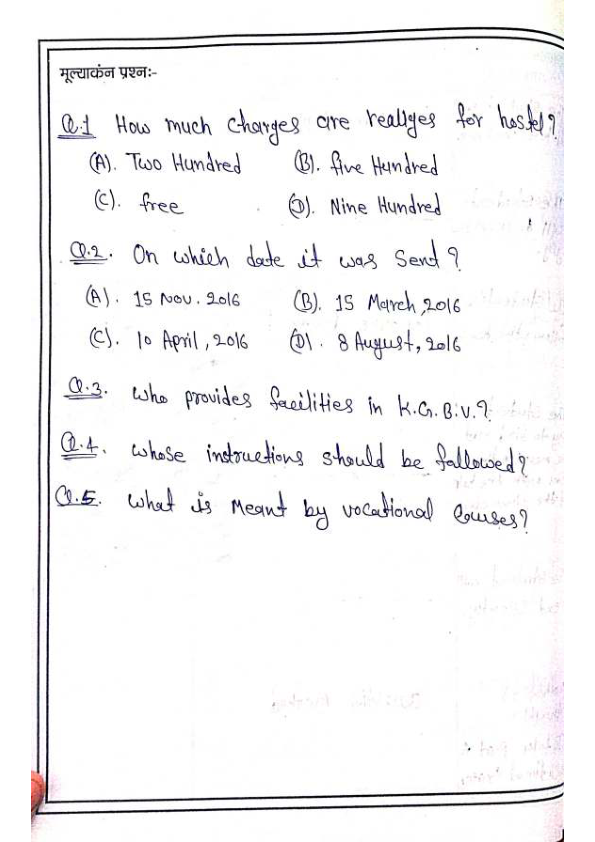 मूल्याकंन प्रश्नः-
Q.1 How much charges are reallges for hostel?
(A). Two Hundred (B). five Hundred
(C). free (D). Nine Hundred
Q.2. On which date it was Send?
(A). 15 Nov. 2016 (B). 15 March, 2016
(C). 10 April, 2016 (D). 8 August, 2016
Q.3. who provides facilities in K.G.B.V.?
Q.4. whose instructions should be fallowed?
Q.5. what is Meant by vocational Courses?